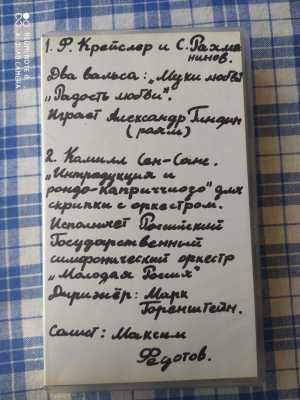 1. Ф. Крейслер и С. Рахма-
нинов.
Два вальса: „Муки любви"
„Радость любви".
Играет Александр Гиндин
(рояль)
2. Камилл Сен-Санс.
„Интродукция и
рондо-каприччиозо" для
скрипки с оркестром.
Исполняет Российский
Государственный
симфонический оркестр
„Молодая Россия"
Дирижёр: Марк
Горенштейн.
Солист: Максим
Федотов.